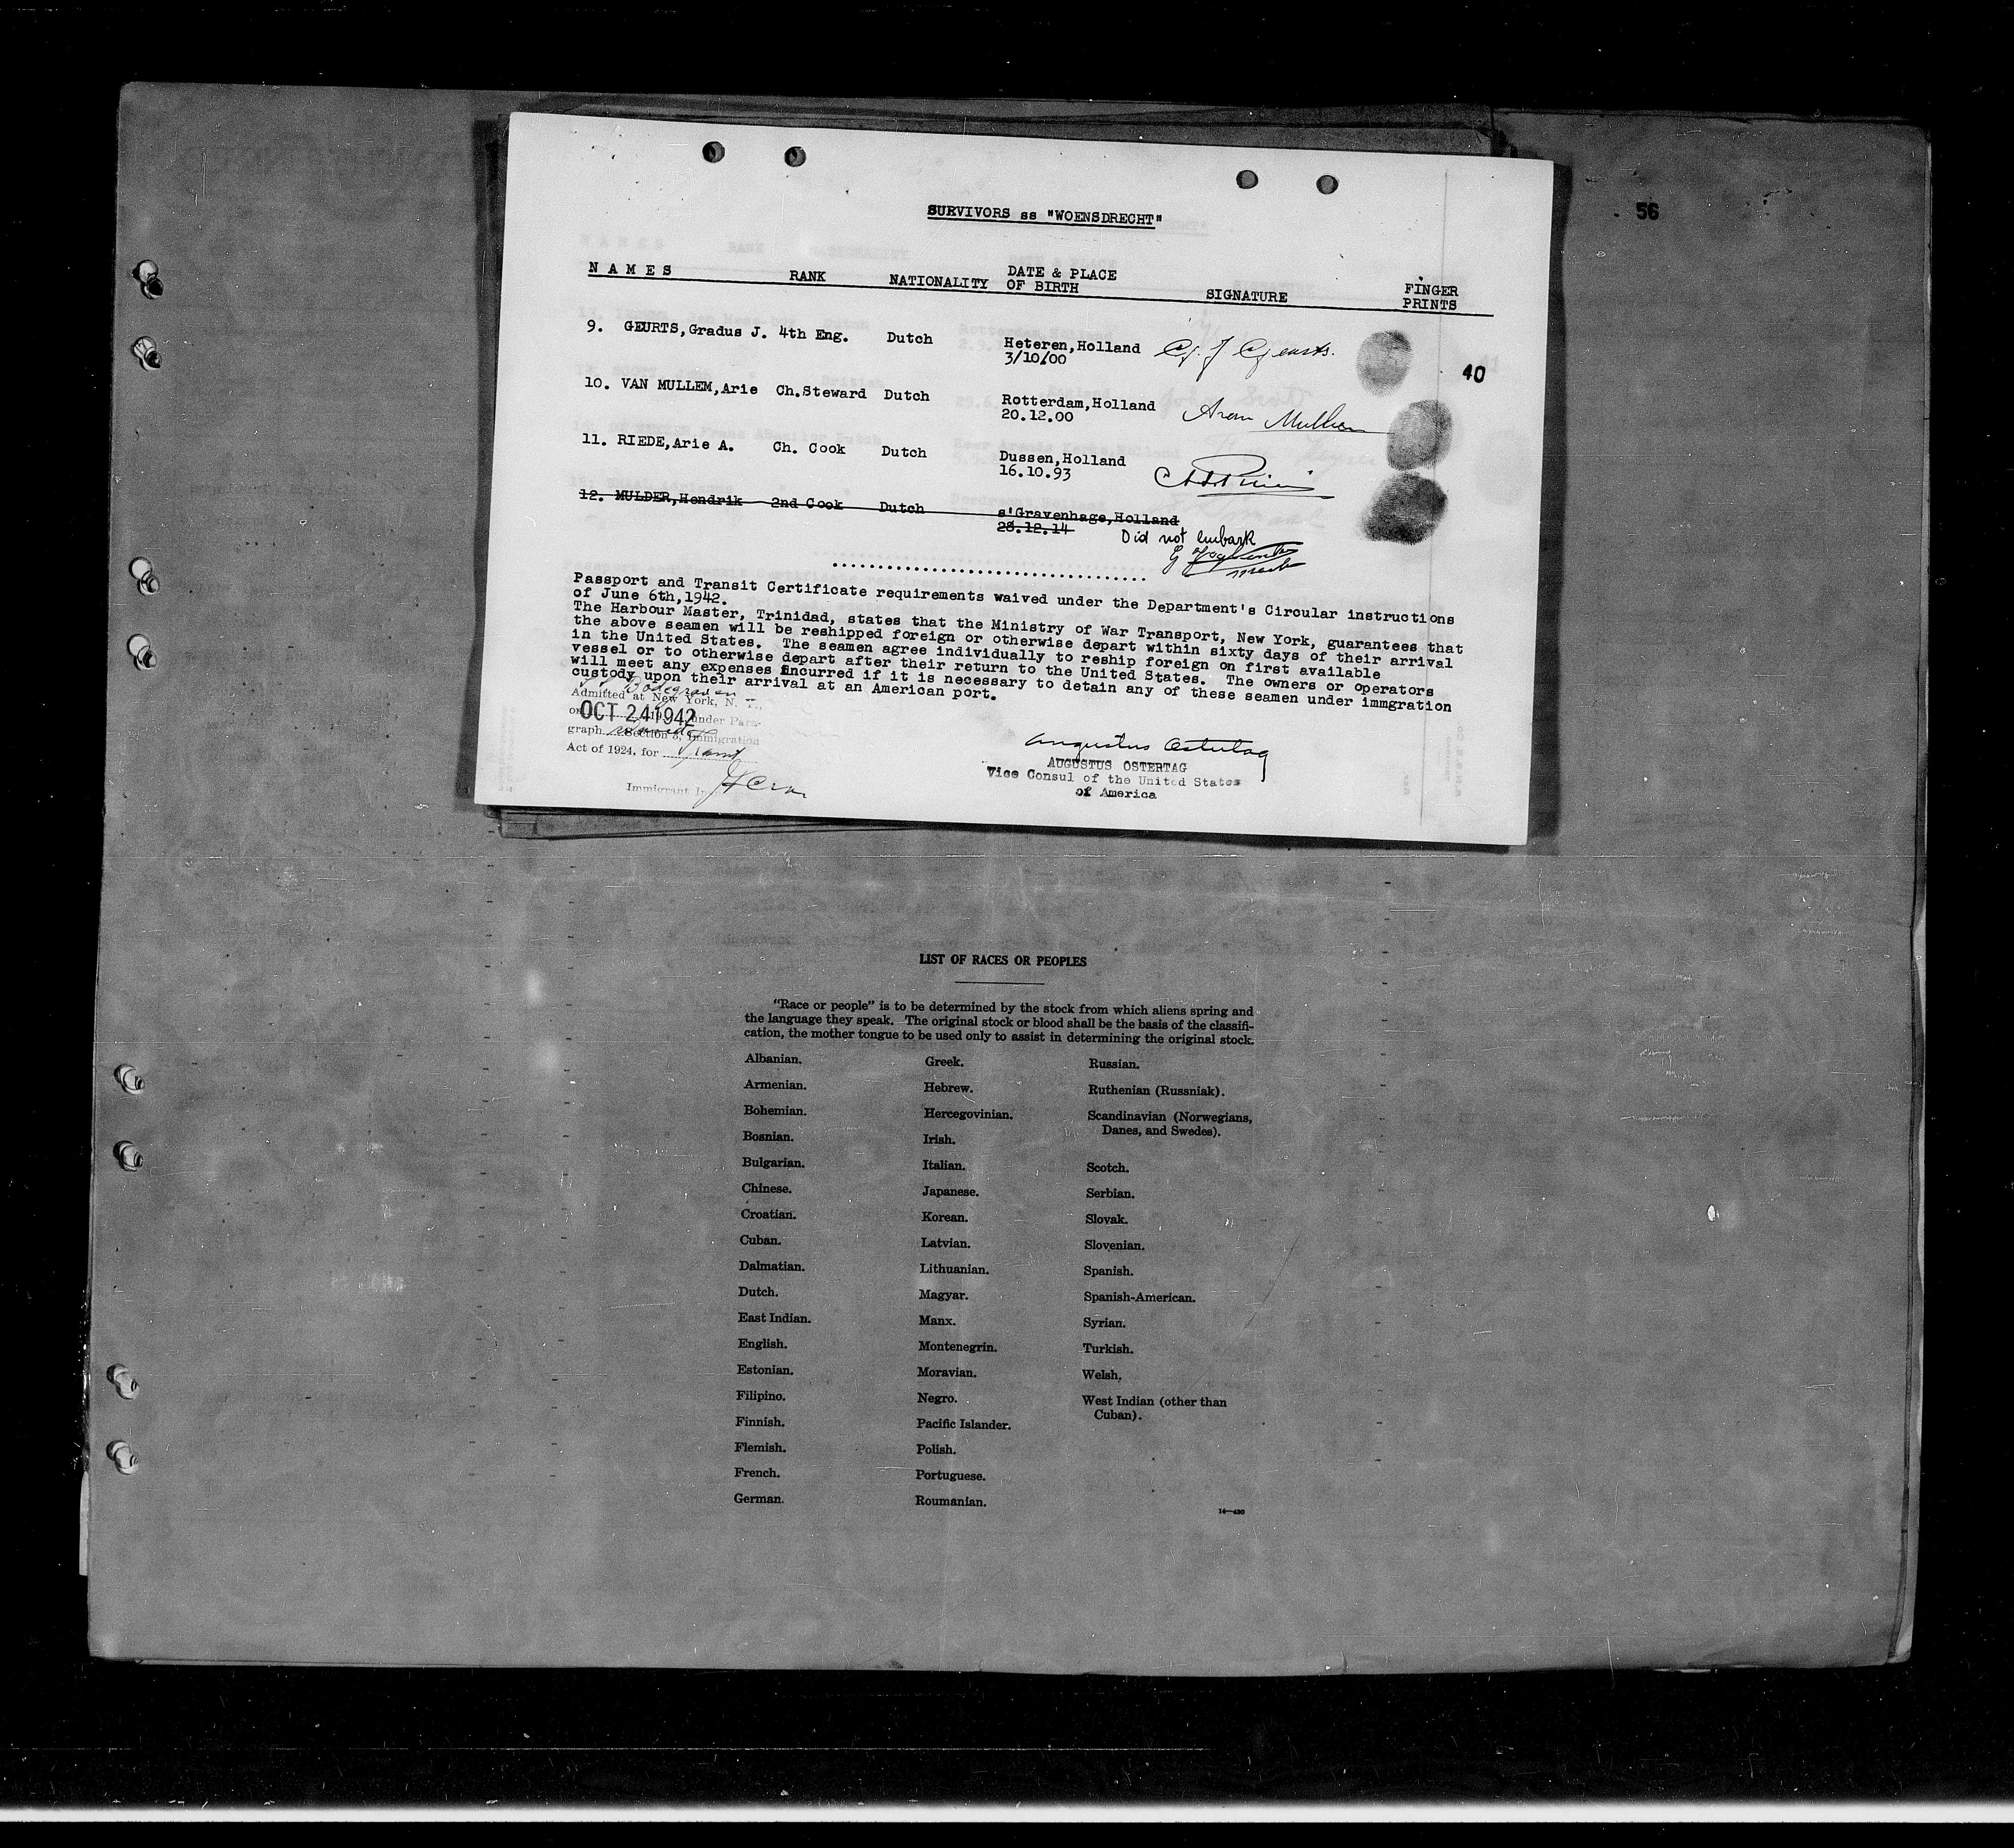 56
SURVIVORS ss "WOENSDRECHT"
N A M E S RANK NATIONALITY DATE & PLACE OF BIRTH SIGNATURE FINGER PRINTS
9. GEURTS,Gradus J. 4th Eng. Dutch Heteren,Holland
3/10/00
40
10. VAN MULLEM,Arie Ch.Steward Dutch Rotterdam,Holland
20.12.00
11. RIEDE,Arie A. Ch. Cook Dutch Dussen,Holland
16.10.93
12. MULDER,Hendrik 2nd Cook Dutch s'Gravenhage,Holland
28.12.14
Did not embark
Passport and Transit Certificate requirements waived under the Department's Circular instructions
of June 6th,1942.
The Harbour Master, Trinidad, states that the Ministry of War Transport, New York, guarantees that
the above seamen will be reshipped foreign or otherwise depart within sixty days of their arrival
in the United States. The seamen agree individually to reship foreign on first available
vessel or to otherwise depart after their return to the United States. The owners or operators
will meet any expenses incurred if it is necessary to detain any of these seamen under immgration
custody upon their arrival at an American port.
Bodegraven
Admitted at New York, N. Y.,
on OCT 24 1942 under Para-
graph Section 3, Immigration
Act of 1924, for
Immigrant In
Augustus Ostertag
AUGUSTUS OSTERTAG
Vice Consul of the United States
of America
LIST OF RACES OR PEOPLES
"Race or people" is to be determined by the stock from which aliens spring and
the language they speak. The original stock or blood shall be the basis of the classifi-
cation, the mother tongue to be used only to assist in determining the original stock.
Albanian.
Armenian.
Bohemian.
Bosnian.
Bulgarian.
Chinese.
Croatian.
Cuban.
Dalmatian.
Dutch.
East Indian.
English.
Estonian.
Filipino.
Finnish.
Flemish.
French.
German.
Greek.
Hebrew.
Hercegovinian.
Irish.
Italian.
Japanese.
Korean.
Latvian.
Lithuanian.
Magyar.
Manx.
Montenegrin.
Moravian.
Negro.
Pacific Islander.
Polish.
Portuguese.
Roumanian.
Russian.
Ruthenian (Russniak).
Scandinavian (Norwegians,
Danes, and Swedes).
Scotch.
Serbian.
Slovak.
Slovenian.
Spanish.
Spanish-American.
Syrian.
Turkish.
Welsh.
West Indian (other than
Cuban).
14—430